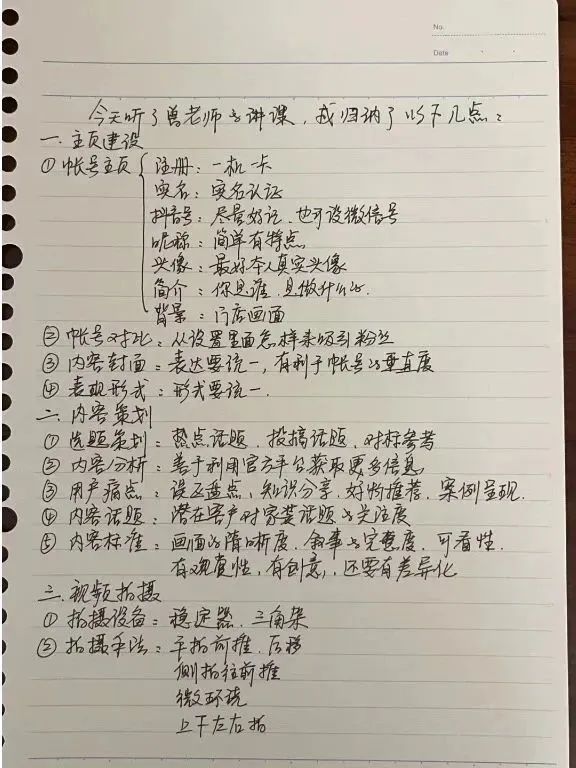 No.
Date
今天听了曾老师的讲课，我归纳了以下几点：
一. 主页建设
① 帐号主页 { 注册：一机一卡
实名：实名认证
抖音号：尽量好记、也可设微信号
昵称：简单有特点
头像：最好本人真实头像
简介：你是谁，是做什么的.
背景：门店画面
② 帐号对比：从设置里面怎样来吸引粉丝
③ 内容封面：表达要统一，有利于帐号的垂直度
④ 表现形式：形式要统一.
二. 内容策划
① 选题策划：热点话题、投搞话题、对标参考
② 内容分析：善于利用官方平台获取更多信息
③ 用户痛点：误区盘点，知识分享，好物推荐，案例呈现.
④ 内容话题：潜在客户对家装话题的关注度
⑤ 内容标准：画面的清晰度，叙事的完整度，可看性，
有观真性，有创意，还要有差异化
三. 视频拍摄
① 拍摄设备：稳定器、三角架
② 拍摄手法：平拍前推、后移
侧拍往前推
微环绕
上下左右拍